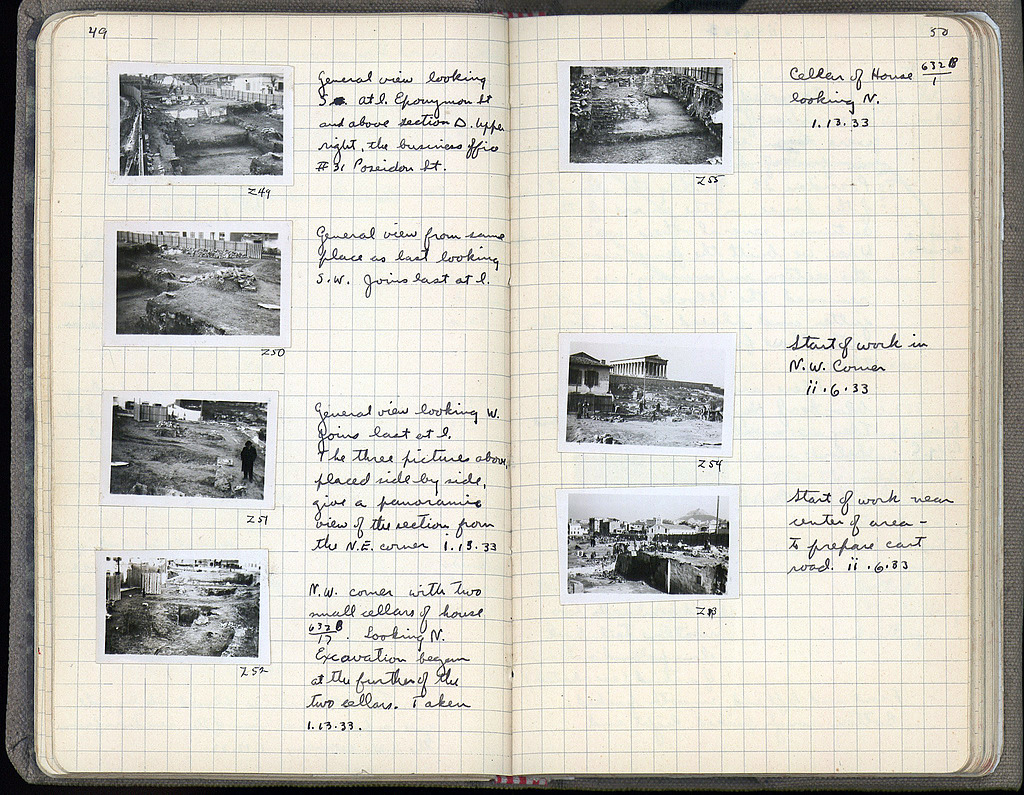 49
General view looking
S. at l. Eponymon St
and above section D. Upper
right, the business office
#31 Poseidon St.
Z49
General view from same
place as last looking
S.W. Joins last at l.
Z50
General view looking W.
Joins last at l.
The three pictures above,
placed side by side,
give a panoramic
view of the section from
the N.E. corner 1.13.33
Z51
N.W. corner with two
small cellars of house
632B/17. Looking N.
Excavation began
at the further of the
two cellars. Taken
1.13.33.
Z52
50
Cellar of House 632B/1
looking N.
1.13.33
Z55
Start of work in
N.W. Corner
ii.6.33
Z54
Start of work near
center of area -
to prepare cart
road. ii.6.33